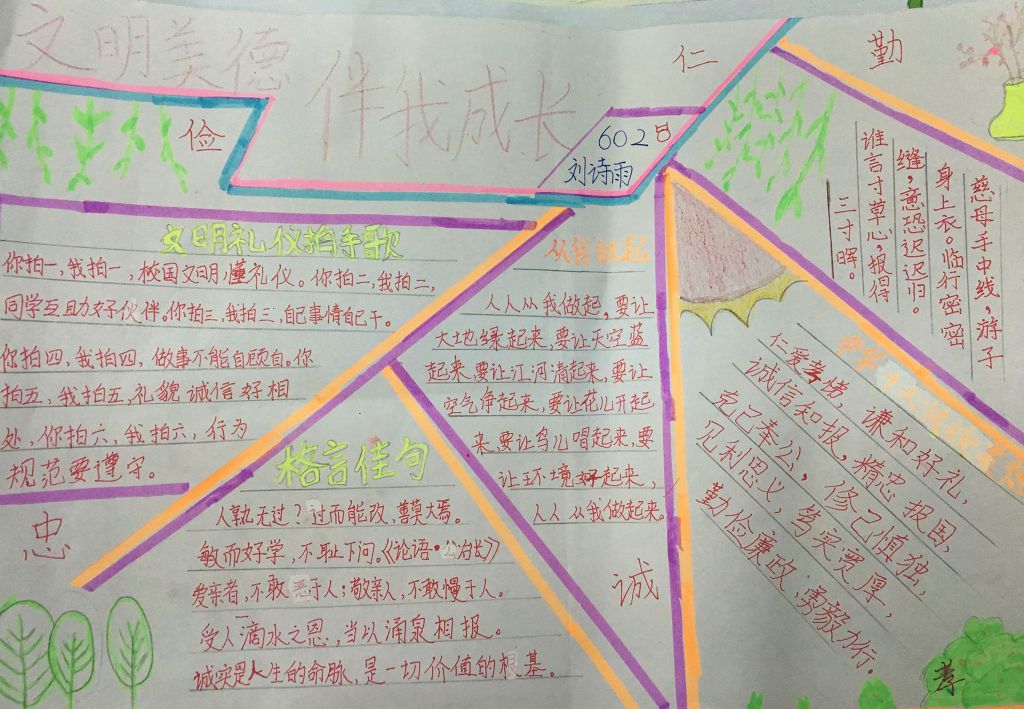 文明美德
伴我成长
602日
刘诗雨
俭
仁
勤
文明礼仪拍手歌
你拍一,我拍一,校园文明懂礼仪。你拍二,我拍二,
同学互助好伙伴。你拍三,我拍三,自己事情自己干。
你拍四,我拍四,做事不能自顾自。你
拍五,我拍五,礼貌诚信好相
处,你拍六,我拍六,行为
规范要遵守。
忠
从我做起
人人从我做起,要让
大地绿起来,要让天空蓝
起来,要让江河清起来,要让
空气净起来,要让花儿开起
来,要让鸟儿唱起来,要
让环境好起来,
人人从我做起来。
诚
格言佳句
人孰无过?过而能改,善莫大焉。
敏而好学,不耻下问。《论语·公冶长》
爱亲者,不敢恶于人;敬亲人,不敢慢于人。
受人滴水之恩,当以涌泉相报。
诚实是人生的命脉,是一切价值的根基。
慈母手中线,游子
身上衣。临行密密
缝,意恐迟迟归。
谁言寸草心,报得
三寸晖。
中华
仁爱孝悌,谦和好礼,
诚信知报,精忠报国,
克己奉公,修己慎独,
见利思义,笃实宽厚,
勤俭廉政,勇毅力行。
孝